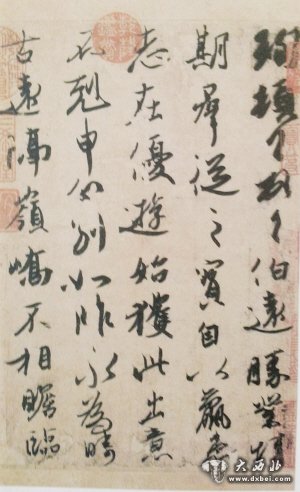 珣頓首頓首伯遠勝業情
期羣從之寶自以羸患
志在優遊始獲此出意
不剋申分別如昨永為疇
古遠隔嶺嶠不相瞻臨
大西北
www.dxbei.com